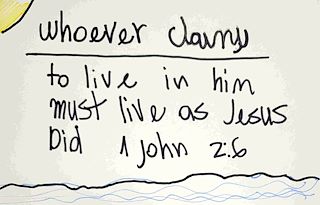 whoever claims
to live in him
must live as Jesus
Did 1 John 2:6